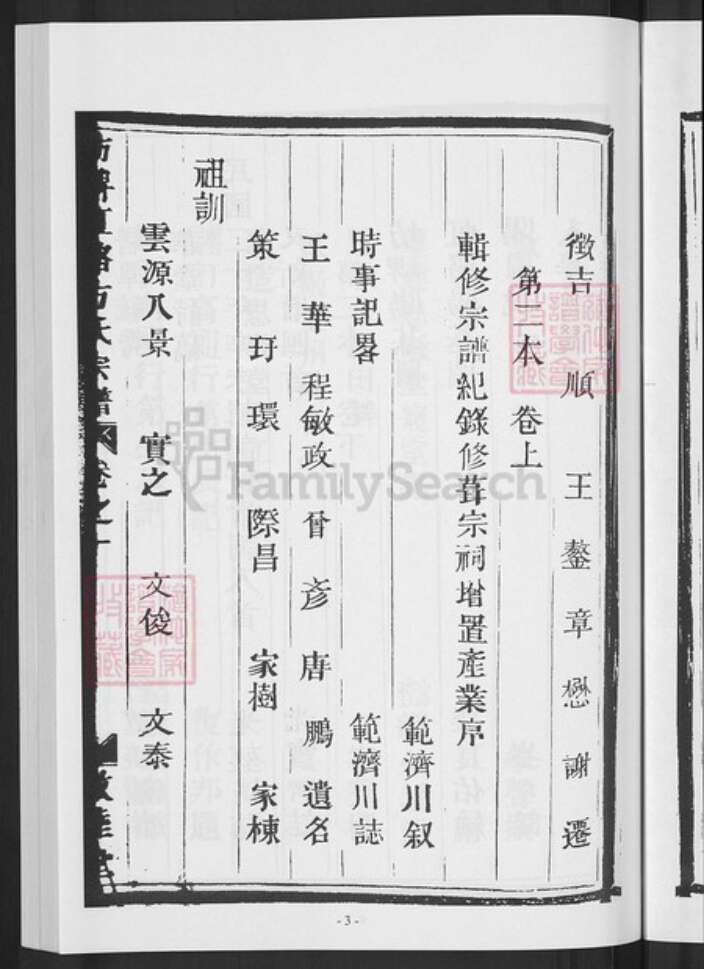 徵吉 順 王鏊 章懋 謝遷
第二本 卷上
輯修宗譜紀錄修葺宗祠增置產業序
範濟川叙
時事記畧 範濟川誌
王華 程敏政 曾彥 唐鵬 遺名
策 玗 環 際昌 家樹 家棟
祖訓
雲源八景 實之 文俊 文泰
方氏宗譜 卷之一
FamilySearch
- 3 -